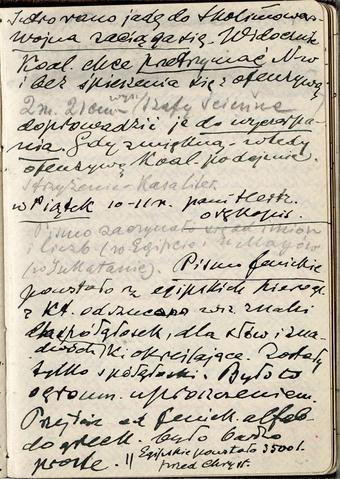 Jutro rano jadę do Skolimowa.
Wojna zaciąga się. Widocznie
Koal. chce przetrzymać N-w
i bez śpieszenia się z ofenzywą
2 m. szafy ścienne
doprowadzić je do wyczerpa-
nia. Gdy zmiękną - wtedy
ofenzywę Koal. podejmie.
Strzyżenie
w Piątek 10-11 r.
Pismo zaczynało się od imion
i liczb (w Egipcie i u Mayów
(w Jukatanie). Pismo fenickie
powstało z egipskich hierogl.
z kt. odrzucono wsz. znaki
dla spółgłosek, dla słów i zna-
ki określające. Zostały
tylko spółgłoski. Było to
ogromn. uproszczeniem.
Przejście od fenick. alfab.
do greck. było bardzo
proste. || Egipskie powstało 3500 l.
przed Chryst.